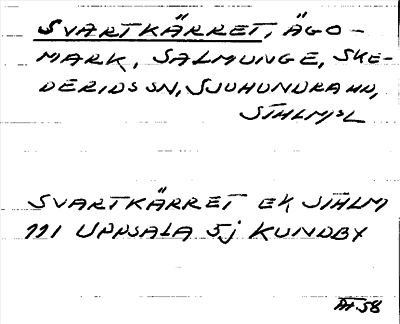 SVARTKÄRRET, ÄGO-
MARK, SALMUNGE, SKE-
DERIDS SN, SJUHUNDRA HD,
STHLMS L
SVARTKÄRRET EK STHLM
111 UPPSALA 5j KUNDBY
58